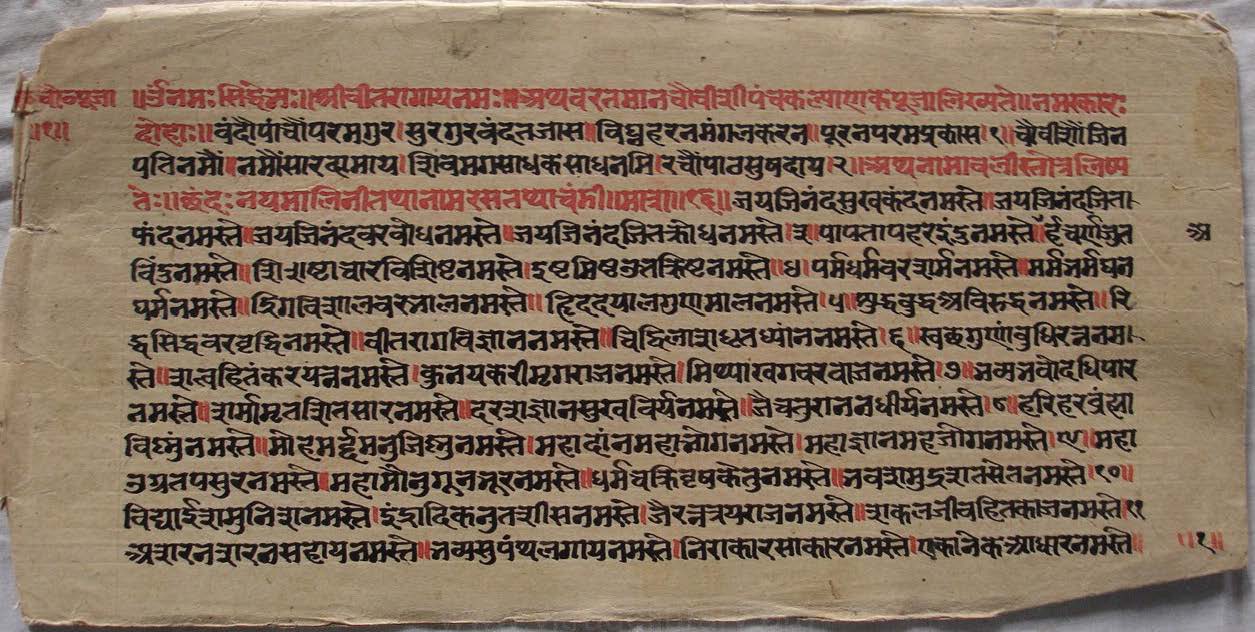 चौ०पूजा ॥ॐनमः सिद्धेभ्यः॥श्रीवीतरागायनमः॥अथवरतमानचौवीशीपंचकल्याणकपूजालिख्यते॥नमस्कारः
॥१॥ दोहाः॥वंदौपांचौंपरमगुर।सुरगुरवंदतजास॥विघ्नहरनमंगलकरन।पूरनपरमप्रकास।१।चौवीशौंजिन
पतिनमौं॥नमौंसारदामाय।शिवमगसाधकसाधनमि।रचौंपाठसुषदाय।२॥अथनामावलीस्तोत्रलिष्य
ते॥छंदःनयमालिनीतथातामरसतथाचंडी॥मात्रा॥१६॥जयजिनंदसुखकंदनमस्ते॥जयजिनंदजिता
फंदनमस्ते॥जयजिनंदवरवोधनमस्ते॥जयजिनंदजितक्रोधनमस्ते।३।पापतापहरइंदुनमस्ते॥र्हंवर्णजुत
विंदुनमस्ते॥शिष्टाचारविशिष्टनमस्ते।इष्टमिष्टउतकिष्टनमस्ते॥४।पर्मधर्मवरशर्मनमस्ते॥मर्मभर्मघन
घर्मनमस्ते॥द्रिगविशालवरभालनमस्ते॥ह्रिददयालगुणमालनमस्ते।५॥शुद्धवुद्धअविरुद्धनमस्ते॥रि
द्धसिद्धवरवृद्धिनमस्ते॥वीतरागविज्ञाननमस्ते॥चिद्विलाशधृतध्यांननमस्ते।६॥स्वछगुणांवुधिरत्ननम
स्ते॥शत्वहितंकरयत्ननमस्ते।कुनयकरीमृगराजनमस्ते।मिथ्याखगवरवाजनमस्ते।७॥भव्यभवोदधिपार
नमस्ते॥शर्मामृतशितसारनमस्ते॥दरशज्ञानसुखविर्यनमस्ते॥जैचतुराननधीर्यनमस्ते।८॥हरिहरव्रंह्मा
विष्णुनमस्ते॥मोहमर्द्दमनुजिश्नुनमस्ते।महादांनमहाभोगनमस्ते।महाज्ञानमहजोगनमस्ते।९॥महा
उग्रतपसुरनमस्ते।महामौनुगूनभूरनमस्ते॥धर्मचक्रिवृषकेतुनमस्ते॥भवशमुद्रशतसेतनमस्ते।१०॥
विद्याईशमुनिशनमस्ते।इंद्रादिकनुतशीसनमस्ते।जैरत्नत्रयराजनमस्ते॥शकलजीवहितकाजनमस्ते।११
अशरनशरनसहायनमस्ते॥भव्यसुपंथलगायनमस्ते।निराकारसाकारनमस्ते।एकानेकआधारनमस्ते ॥१॥